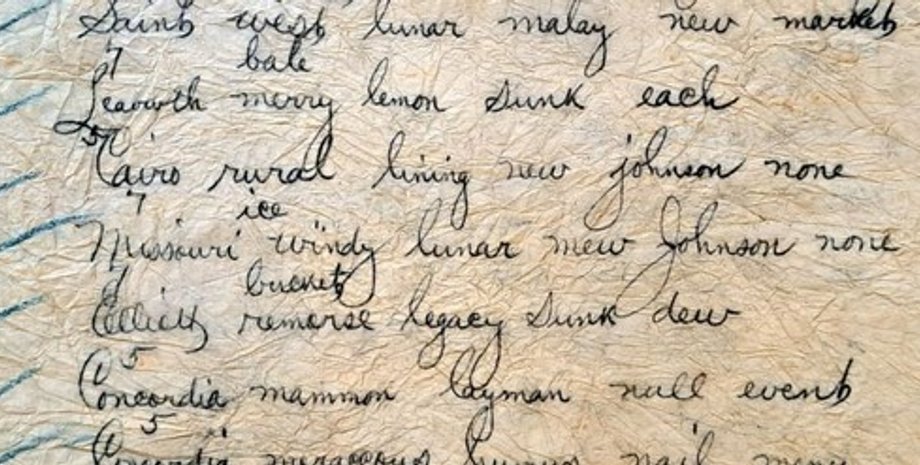 Saint west lunar malay new market
7 bale
Leavwth merry lemon sunk each
5
Cairo rural lining new johnson none
7 ice
Missouri windy lunar mew Johnson none
bucket
Elliott remorse legacy sunk dew
5
Concordia mammon layman null event
5
Concordia nail many